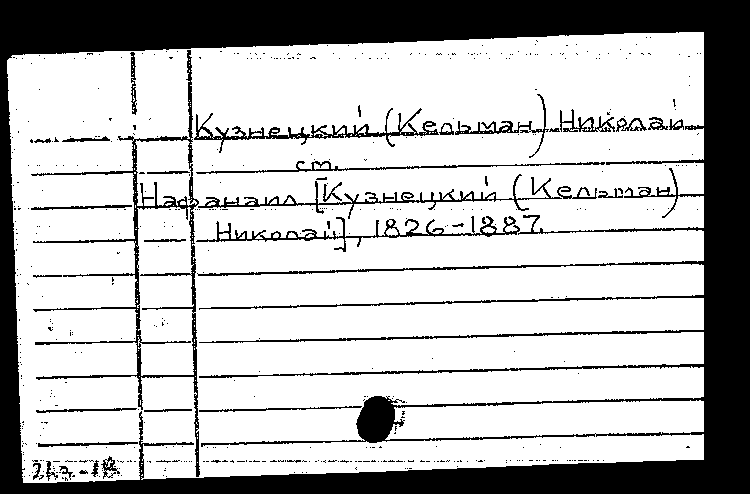 Кузнецкий (Кельман) Николай
см.
Нафанаил [Кузнецкий (Кельман)
Николай], 1826-1887.